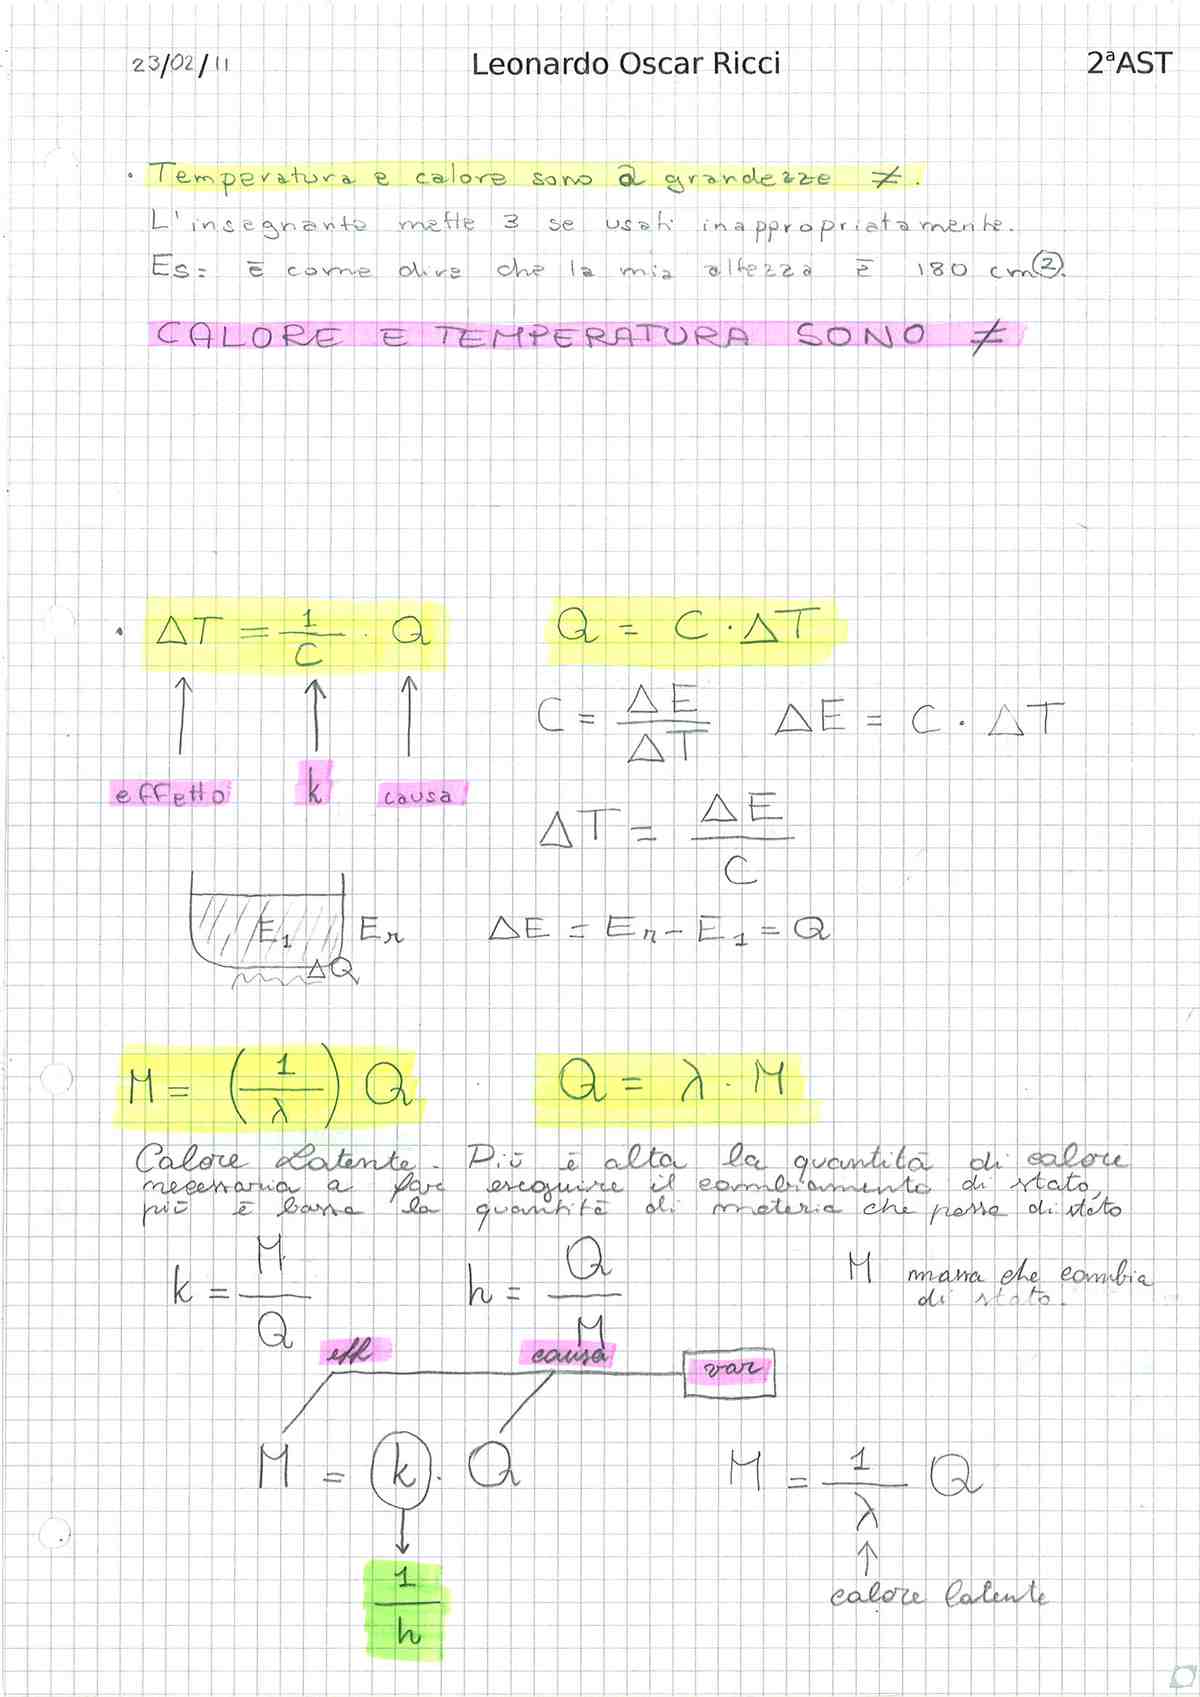 23/02/11 Leonardo Oscar Ricci 2ªAST
• Temperatura e calore sono 2 grandezze ≠.
L'insegnante mette 3 se usati inappropriatamente.
Es: è come dire che la mia altezza è 180 cm².
CALORE E TEMPERATURA SONO ≠
• ΔT = 1/C · Q Q = C · ΔT
C = ΔE/ΔT ΔE = C · ΔT
effetto k causa
ΔT = ΔE/C
E₁ Eₙ ΔE = Eₙ - E₁ = Q
ΔQ
M = (1/λ) Q Q = λ · M
Calore Latente. Più è alta la quantità di calore
necessaria a far eseguire il cambiamento di stato,
più è bassa la quantità di materia che passa di stato
k = M/Q h = Q/M M massa che cambia
di stato.
eff causa var
M = k · Q M = 1/λ Q
1/h calore latente